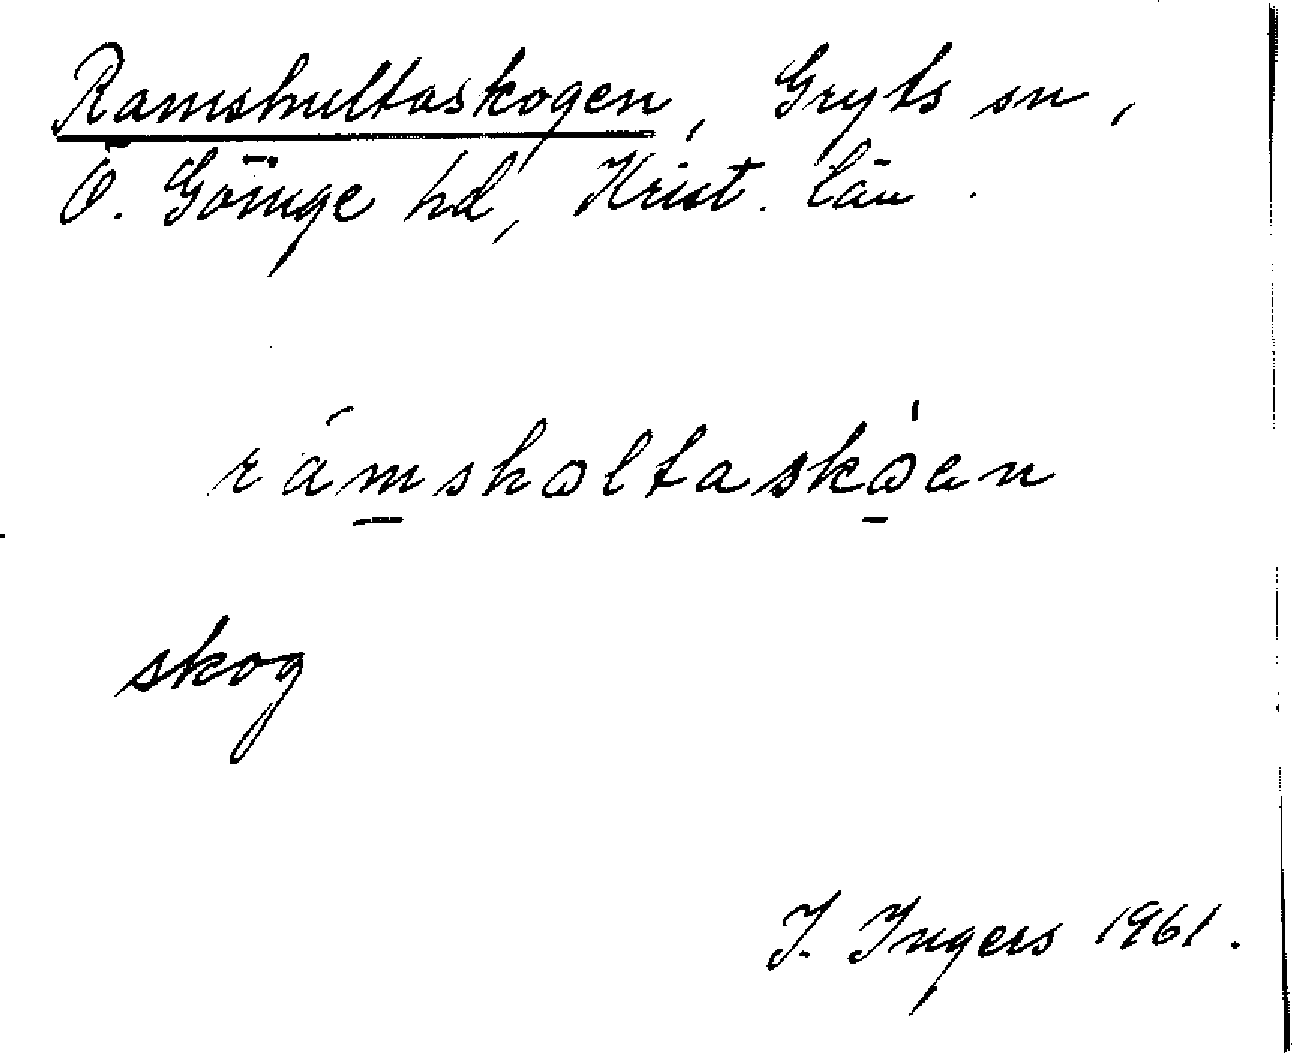 Ramshultaskogen, Gryts sn,
Ö. Göinge hd, Krist. län.
rámshɷltaskɷ̀en
skog
I. Ingers 1961.